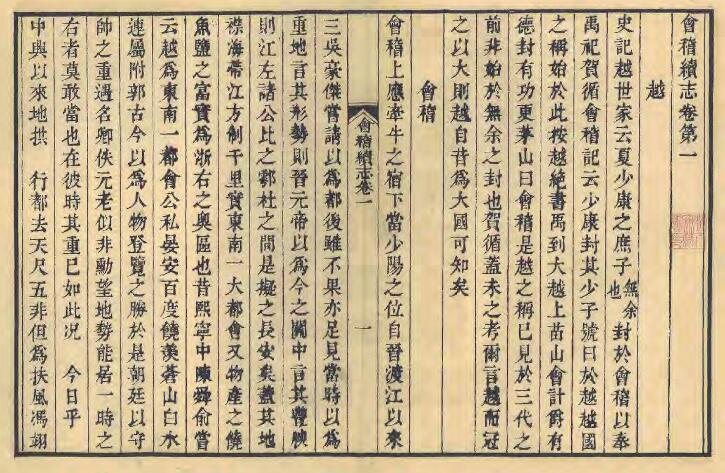 會稽續志卷第一
越
史記越世家云夏少康之庶子無余也封於會稽以奉
禹祀賀循會稽記云少康封其少子號曰於越越國
之稱始於此按越絶書禹到大越上苗山會計爵有
德封有功更茅山曰會稽是越之稱已見於三代之
前非始於無余之封也賀循蓋未之考爾言越而冠
之以大則越自昔為大國可知矣
會稽
會稽上應牽牛之宿下當少陽之位自晉渡江以來
會稽續志卷一
一
三吳豪傑嘗請以為都後雖不果亦足見當時以為
重地言其形勢則晉元帝以為今之關中言其豐腴
則江左諸公比之鄠杜之間是擬之長安矣蓋其地
襟海帶江方制千里實東南一大都會又物產之饒
魚鹽之富實為浙右之奧區也昔熙寧中陳舜俞嘗
云越為東南一都會公私晏安百度饒羨蒼山白水
連屬附郭古今以為人物登覽之勝於是朝廷以守
帥之重遇名卿佚元老似非勳望地勢能居一時之
右者莫敢當也在彼時其重已如此况 今日乎
中興以來地拱 行都去天尺五非但為扶風馮翊